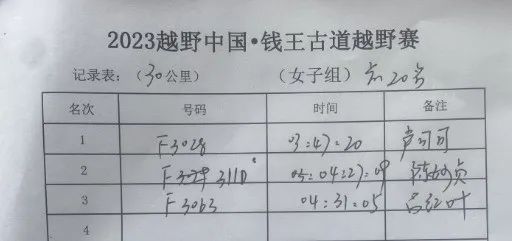 2023越野中国·钱王古道越野赛
记录表：（30公里） （女子组）前20名
名次 号码 时间 备注
1 F3028 03:47:20 卢可可
2 F3110 04:27:09
3 F3063 04:31:05 吕红叶
4